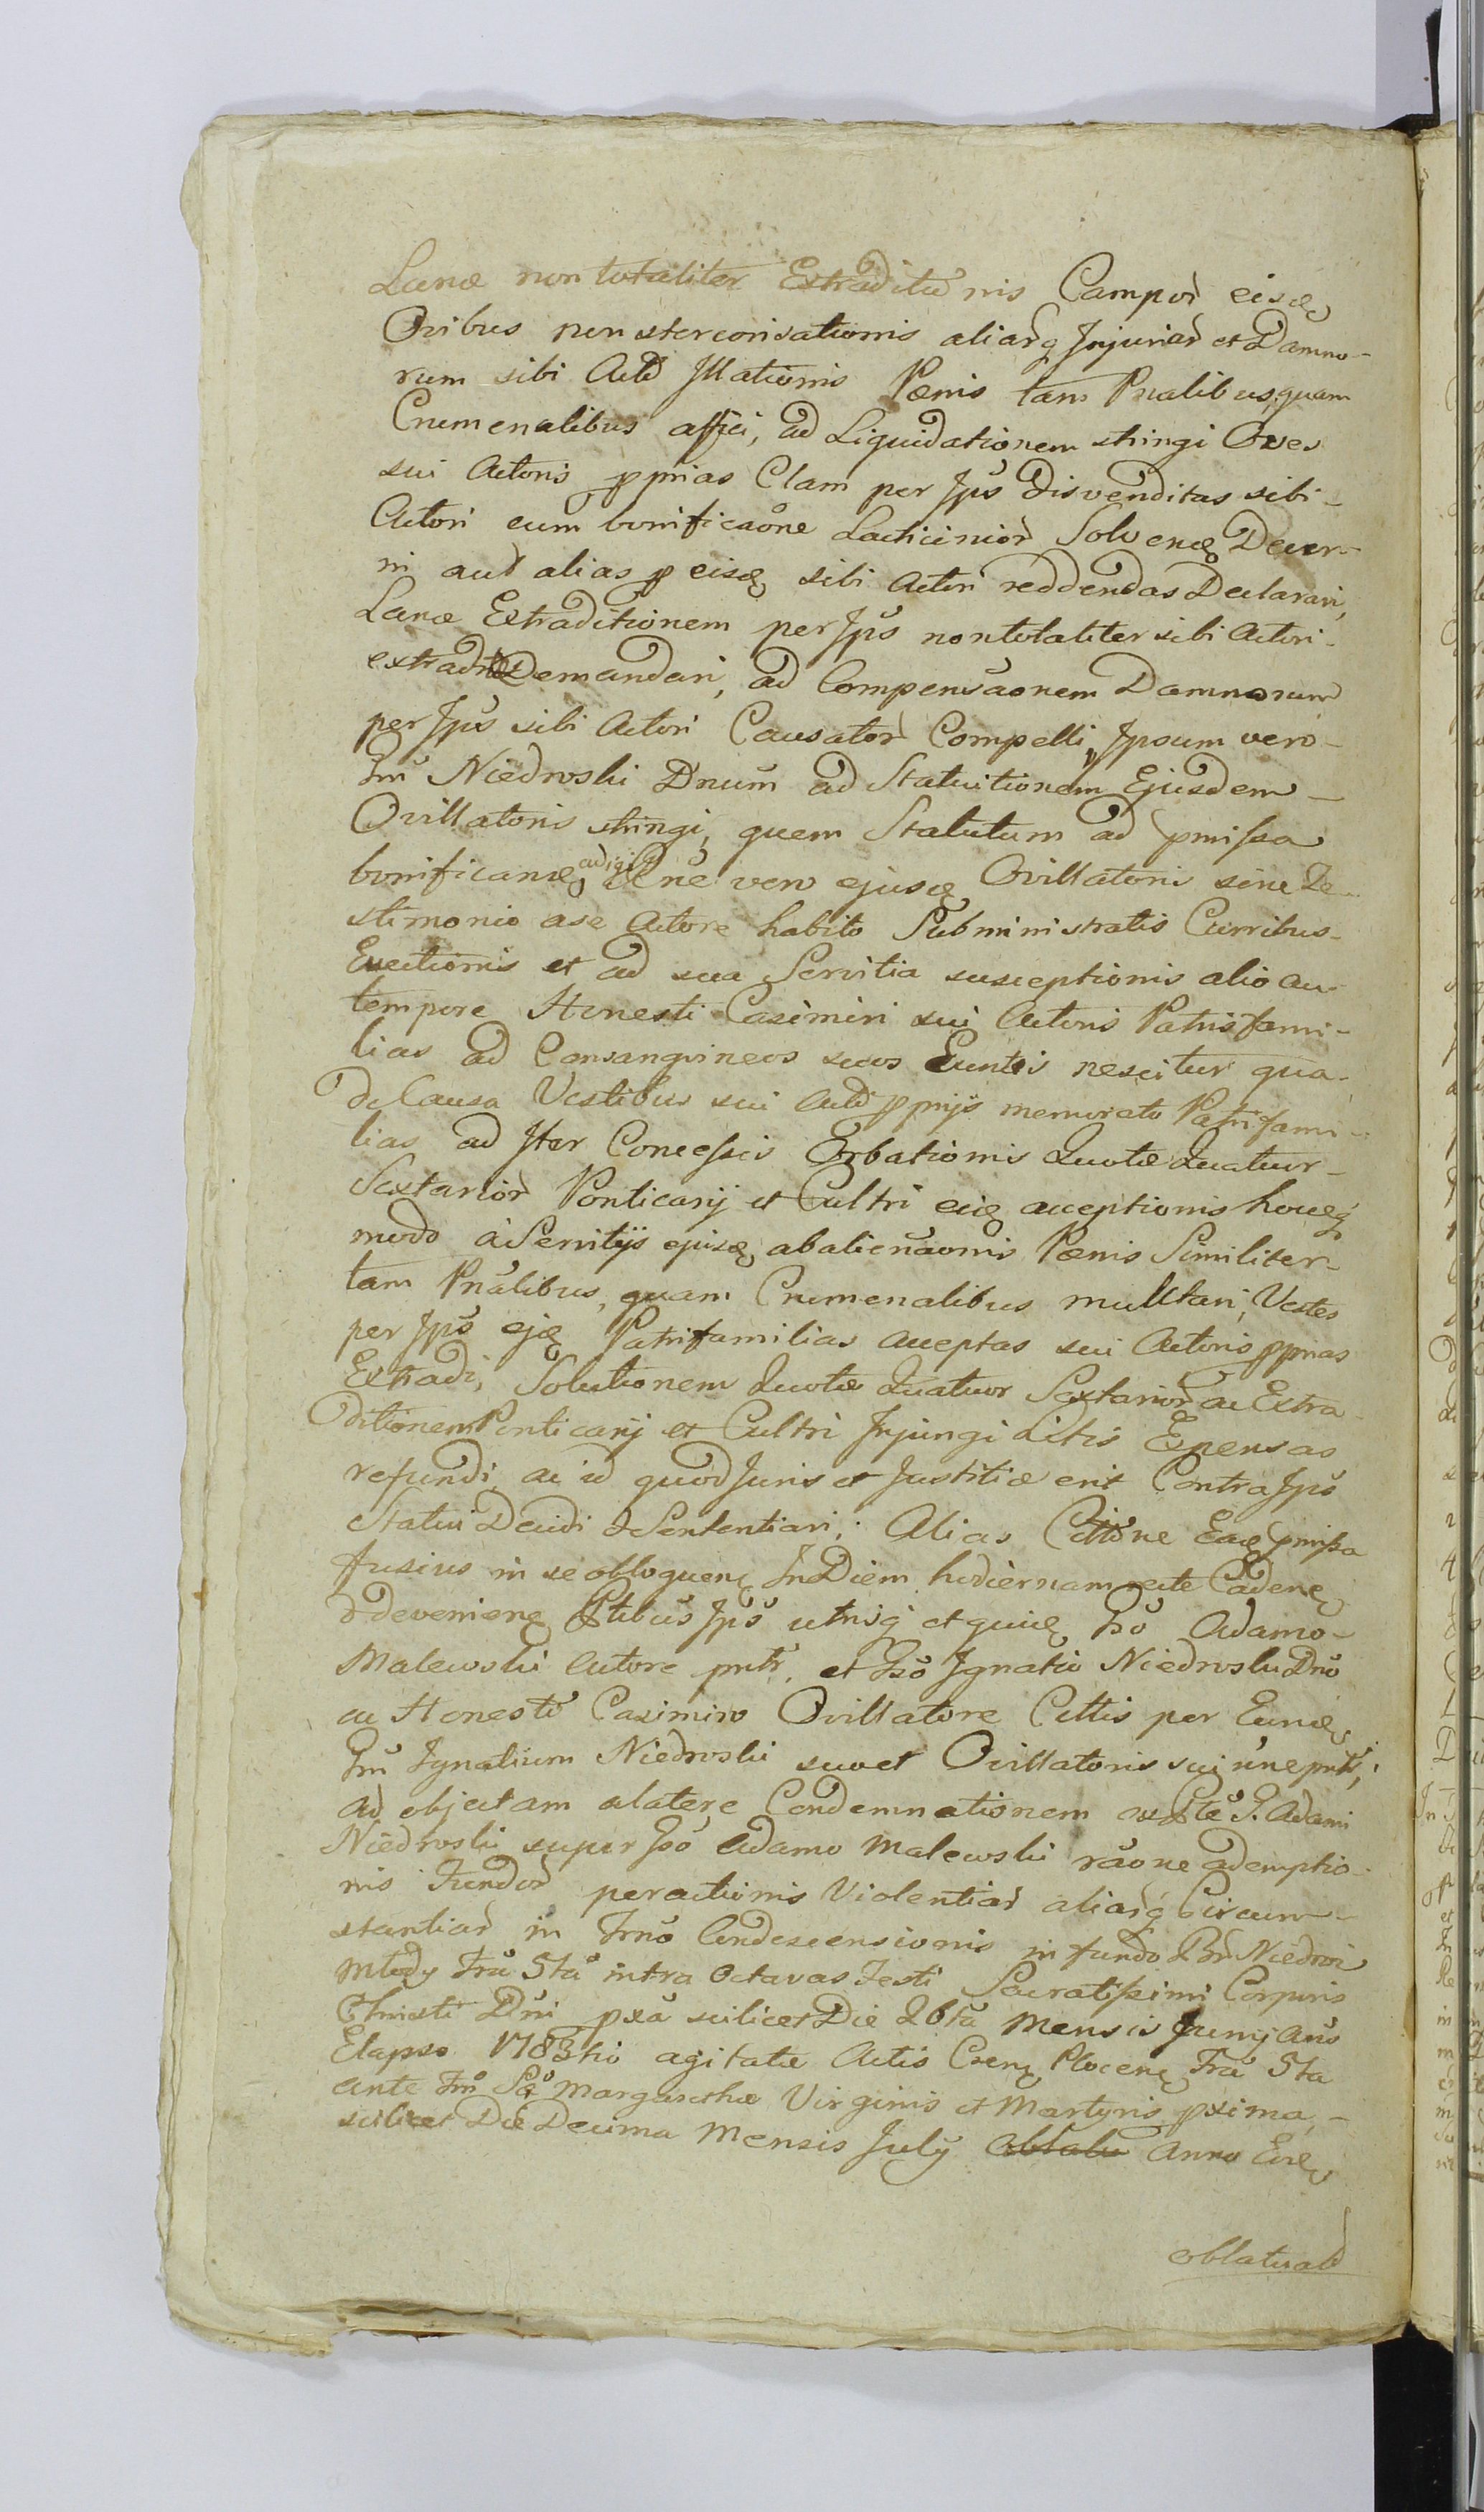 Lanæ non totaliter Extraditionis Campor eisdę
Ovibus non stercorisationis aliarq Injuriar et Damno-
rum sibi Acto Illationis Pænis tam Pnalibus, quam
Crumenalibus affici, ad Liquidationem stringi Oves
sui Actoris pprias Clam per Jps disvenditas sibi-
Actori cum bonificaone Lacticinior Solvenę Decer-
ni aut alias p eisdę sibi Actori reddendas Declarari,
Lanæ Extraditionem per Jps non totaliter sibi Actori-
Demandari, ad Compensaonem Damnorum
per Jps sibi Actori Causator Compelli, Ipsum vero-
Gm Niedroski Dnum ad Statuitionem Ejusdem-
Ovillatoris stringi, quem Statutum ad pmissa
bonificanę adigi, ne vero ejusdę Ovillatoris sine Te-
stimonio a se Actore habito Subministratis Curribus-
Evectionis et ad sua Servitia susceptionis alio au-
tempore Honesti Casimiri sui Actoris Patrisfami-
lias ad Consangvineos suos Euntis nescitur qua-
de Causa Vestibus sui Acto pprijs memorato Patrifami-
lias ad Iter Concessis Orbationis Quotæ Quatuor-
Sextarior Ponticarij et Cultri eidę acceptionis hocęq
modo à Servitijs ejusdę abalienaonis Pænis Similiter-
tam Pnalibus, quam Crumenalibus mulktari, Vestes
per Jps ejdę Patrifamilias acceptas sui Actoris pprias
Extradi, Solutionem Quotæ Quatuor Sextarior ac Extra-
ditionem Ponticarij et Cultri Injungi Litis Expensas
refundi, ac id quod Juris et Justitiæ erit Contra Jps
Statui Decidi & Sententiari; Alias Cittõne Eadę pmissa
fusius in se obloquenę In Diem hodiernam recte Cadenę
& devenienę Ptibus Jps utrisq et quidę Gso Adamo-
Malewski Actore pntr, et Gso Ignatio Niedroski Dno
ac Honesto Casimiro Ovillatore Cittis per Eundę
Gm Ignatium Niedroski suo et Ovillatoris sui nne pntr,
ad objectam a latere Condemnationem ex Pte G. Adami
Niedroski super Gso Adamo Malewski raone ademptio-
nis Fundor peractionis Violentiar aliarq Circum-
stantiar in Trno Condescensionis in fundo Bnr Niedroi
Młody Fra 5ta intra Octavas Festi Sacratissimi Corporis
Christi Dni pxa scilicet Die 26ta Mensis Junij ans
Elapso 1783tio agitatæ Actis Crenę Plocenę Fra 5ta
ante Fm Sæ Margarethæ Virginis et Martyris pxima,-
scilicet Die Decima Mensis July Anno Eodę
oblatuar